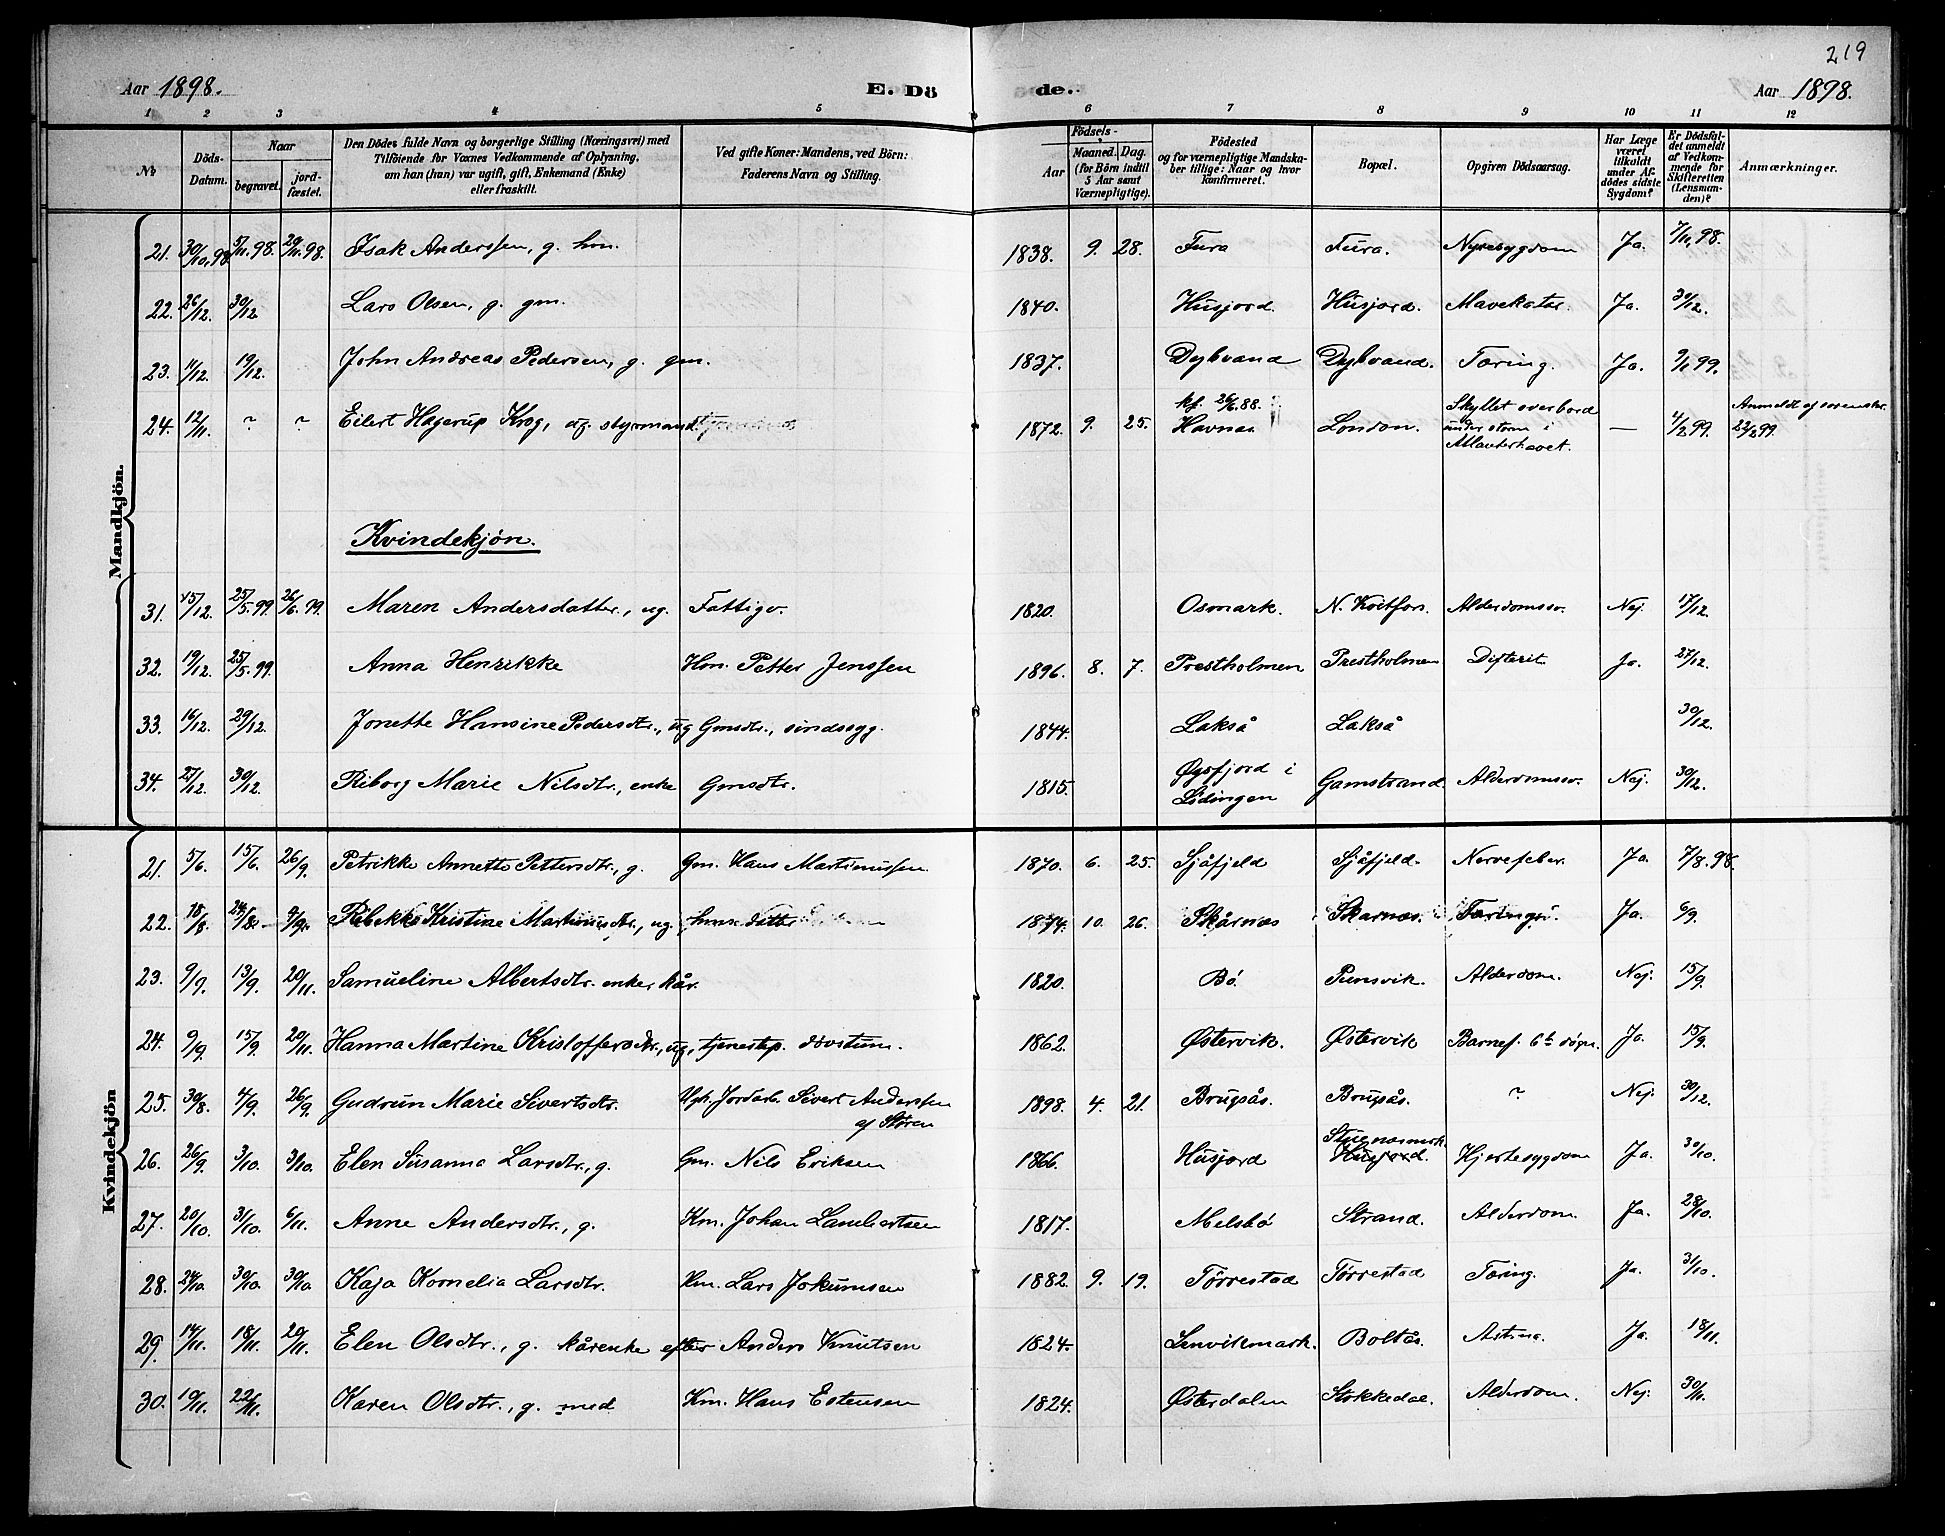 219
Aar 1898. E. Dö de. Aar 1898.
1 2 3 4 5 6 7 8 9 10 11 12
No
Döds-Datum.
Naar
begravet.
jord-fæstet.
Den Dödes fulde Navn og borgerlige Stilling (Næringsvei) med
Tilföiende for Voxnes Vedkommende af Oplysning,
om han (hun) var ugift, gift, Enkemand (Enke)
eller fraskilt.
Ved gifte Koner: Mandens, ved Börn:
Faderens Navn og Stilling.
Födsels-
Aar
Maaned. Dag.
(for Börn indtil
5 Aar samt
Værnepligtige).
Födested
og for værnepligtige Mandska-
ber tillige: Naar og hvor
konfirmeret.
Bopæl.
Opgiven Dödsaarsag.
Har Læge
været
tilkaldt
under Af-
dödes sidste
Sygdom?
Er Dödsfal-
det anmeldt
af Vedkom-
mende for
Skifteretten
(Lensman-
den)?
Anmærkninger.
Mandkjön.
21. 30/10.98 5/11.98. 20/11.98. Isak Anderssen, g. hm. 1838. 9. 28. Fura Fura. Nyresygdom Ja. 7/11.98.
22. 26/12. 30/12 Lars Olsen, g. gm. 1840. Husjord. Husjord. Mavekatar. Ja. 30/12.
23. 11/12. 19/12. John Andreas Pedersen, g. gm. 1837. Dybvand Dybvand. Tæring. Ja. 9/1 99.
24. 12/11. ~ ~ Eilert Hagerup Krog, ug. styrmand 1872. 9. 25. kf. 26/6.88. Havnæs. London. Skyllet overbord under storm i Atlanterhavet. — 4/2 99. Anmeldt af sorenskr. 22/2 99.
Kvindekjön.
31. 15/12. 25/5.99 26/6.99. Maren Andersdatter, ug. Fattigv. 1820. Osmark. N. Kvitfors. Alderdomssv. Nej. 17/12.
32. 19/12. 25/5.99. Anna Henrikke Hm. Petter Jenssen 1896. 8. 7. Prestholmen Prestholmen Difterit. Ja. 27/12.
33. 16/12. 29/12. Jonette Hansine Pedersdtr., ug Gmsdtr., sindssyg. 1844. Lakså Lakså 30/12.
34. 27/12. 30/12. Riborg Marie Nilsdtr., enke Gmsdtr. 1815. Øysfjord i Lödingen Gamstrand. Alderdomssv. Nej. 30/12.
Kvindekjön
21. 5/6. 15/6. 26/9. Petrikke Annette Pettersdtr., g. Gm. Hans Martinussen. 1870. 6. 25. Sjåfjeld Sjåfjeld. Nervefeber. Ja. 7/8.98.
22. 18/8. 24/8. 4/9. Ribekke Kristine Martinusdtr., ug. hmsdatter 1874. 10. 26. Skårnæs Skarnæs. Tæring Ja. 6/9.
23. 9/9. 13/9. 20/11. Samueline Albertsdtr. enke, kår. 1820. Bö. Punsvik. Alderdom. Nej. 15/9.
24. 9/9. 15/9. 20/11. Hanna Martine Kristoffersdtr., ug, tjenestep. døvstum. 1862. Østervik. Østervik Barnef. 6te døgn. Ja. 15/9.
25. 30/8. 4/9. 26/9. Gudrun Marie Sivertsdtr. Ugk. Jordarb. Sivert Anderssen af Støren 1898. 4. 21. Brugsås. Brugsås. ~ Nej. 30/12.
26. 26/9. 3/10. 3/10. Elen Susanna Larsdtr., g. Gm. Nils Eriksen 1866. Husjord Stuenæsmark. Husjord. Hjertesygdom Ja. 30/10.
27. 20/10. 31/10. 6/11. Anne Andersdtr., g. Km. Johan Lambertsen 1817. Melsbö Strand. Alderdom. Ja. 28/10.
28. 24/10. 30/10. 30/10. Kaja Kornelia Larsdtr. Hm. Lars Jokumsen 1882. 9. 19. Törrestad Törrestad Tæring. Ja. 31/10.
29. 14/11. 18/11. 20/11. Elen Olsdtr., g. kårenke efter Anders Knutsen 1824. Lenvikmark. Boltås. Astma. Ja. 18/11.
30. 19/11. 22/11. Karen Olsdtr., g. med Km. Hans Estensen 1824. Østerdalen Stokkedal. Alderdom. Nej. 30/11.